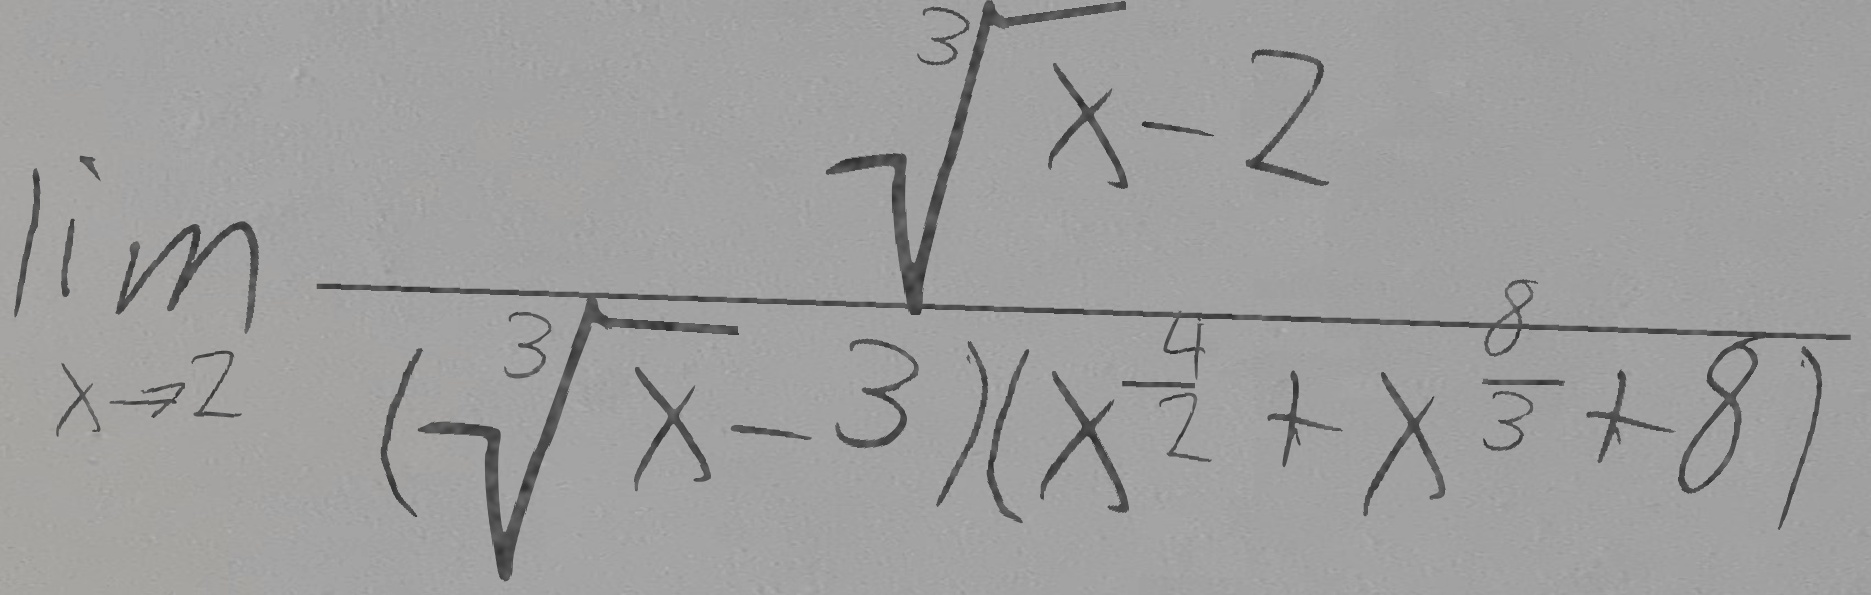 lim x→2 \frac{\sqrt[3]{x-2}}{(\sqrt[3]{x-3})(x^{\frac{4}{2}}+x^{\frac{8}{3}}+8)}